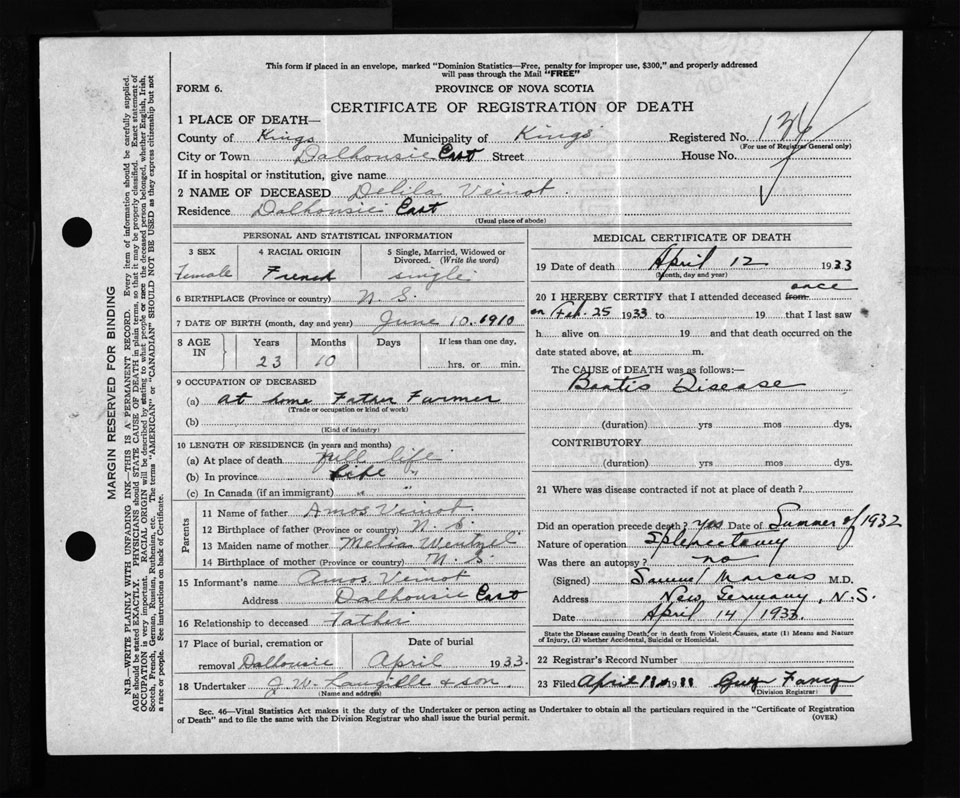 This form if placed in an envelope, marked "Dominion Statistics—Free, penalty for improper use, $300," and properly addressed
will pass through the Mail "FREE"
FORM 6.
PROVINCE OF NOVA SCOTIA
CERTIFICATE OF REGISTRATION OF DEATH
1 PLACE OF DEATH—
County of Kings Municipality of Kings Registered No. 136
(For use of Registrar General only)
City or Town Dalhousie East Street House No.
If in hospital or institution, give name
2 NAME OF DECEASED Delila Veinot
Residence Dalhousie East
(Usual place of abode)
PERSONAL AND STATISTICAL INFORMATION
3 SEX 4 RACIAL ORIGIN 5 Single, Married, Widowed or
Divorced. (Write the word)
Female French single
6 BIRTHPLACE (Province or country) N. S.
7 DATE OF BIRTH (month, day and year) June 10. 1910
8 AGE IN Years Months Days If less than one day,
23 10 hrs. or min.
9 OCCUPATION OF DECEASED
(a) at home Father Farmer
(Trade or occupation or kind of work)
(b)
(Kind of industry)
10 LENGTH OF RESIDENCE (in years and months)
(a) At place of death full life
(b) In province Life "
(c) In Canada (if an immigrant) " "
Parents
11 Name of father Amos Veinot
12 Birthplace of father (Province or country) N. S.
13 Maiden name of mother Melia Wentzel
14 Birthplace of mother (Province or country) N. S
15 Informant's name Amos Veinot
Address Dalhousie East
16 Relationship to deceased Father
17 Place of burial, cremation or Date of burial
removal Dalhousie April 1933.
18 Undertaker J. W. Langille & son
(Name and address)
MEDICAL CERTIFICATE OF DEATH
19 Date of death April 12 1933
(Month, day and year)
once
20 I HEREBY CERTIFY that I attended deceased from
on Feb. 25 1933 to 19 that I last saw
h alive on 19 and that death occurred on the
date stated above, at m.
The CAUSE of DEATH was as follows:—
Bantis Disease
(duration) yrs mos dys.
CONTRIBUTORY
(duration) yrs mos dys.
21 Where was disease contracted if not at place of death?
Did an operation precede death? yes Date of Summer of 1932
Nature of operation Splenectomy
Was there an autopsy? no
(Signed) Samuel Marcus M.D.
Address New Germany, N.S.
Date April 14 / 1933
State the Disease causing Death, or in death from Violent Causes, state (1) Means and Nature
of Injury, (2) whether Accidental, Suicidal or Homicidal.
22 Registrar's Record Number
23 Filed April 19
(Division Registrar)
Sec. 46—Vital Statistics Act makes it the duty of the Undertaker or person acting as Undertaker to obtain all the particulars required in the "Certificate of Registration
of Death" and to file the same with the Division Registrar who shall issue the burial permit.
(OVER)
MARGIN RESERVED FOR BINDING
N.B.—WRITE PLAINLY WITH UNFADING INK—THIS IS A PERMANENT RECORD. Every item of information should be carefully supplied.
AGE should be stated EXACTLY. PHYSICIANS should STATE CAUSE OF DEATH in plain terms, so that it may be properly classified. Exact statement of
OCCUPATION is very important. RACIAL ORIGIN will be described by stating to what people or race the deceased person belonged, whether English, Irish,
Scotch, French, German, Russian, Ruthenian, etc. The terms "AMERICAN" or "CANADIAN" SHOULD NOT BE USED as they express citizenship but not
a race or people. See instructions on back of Certificate.